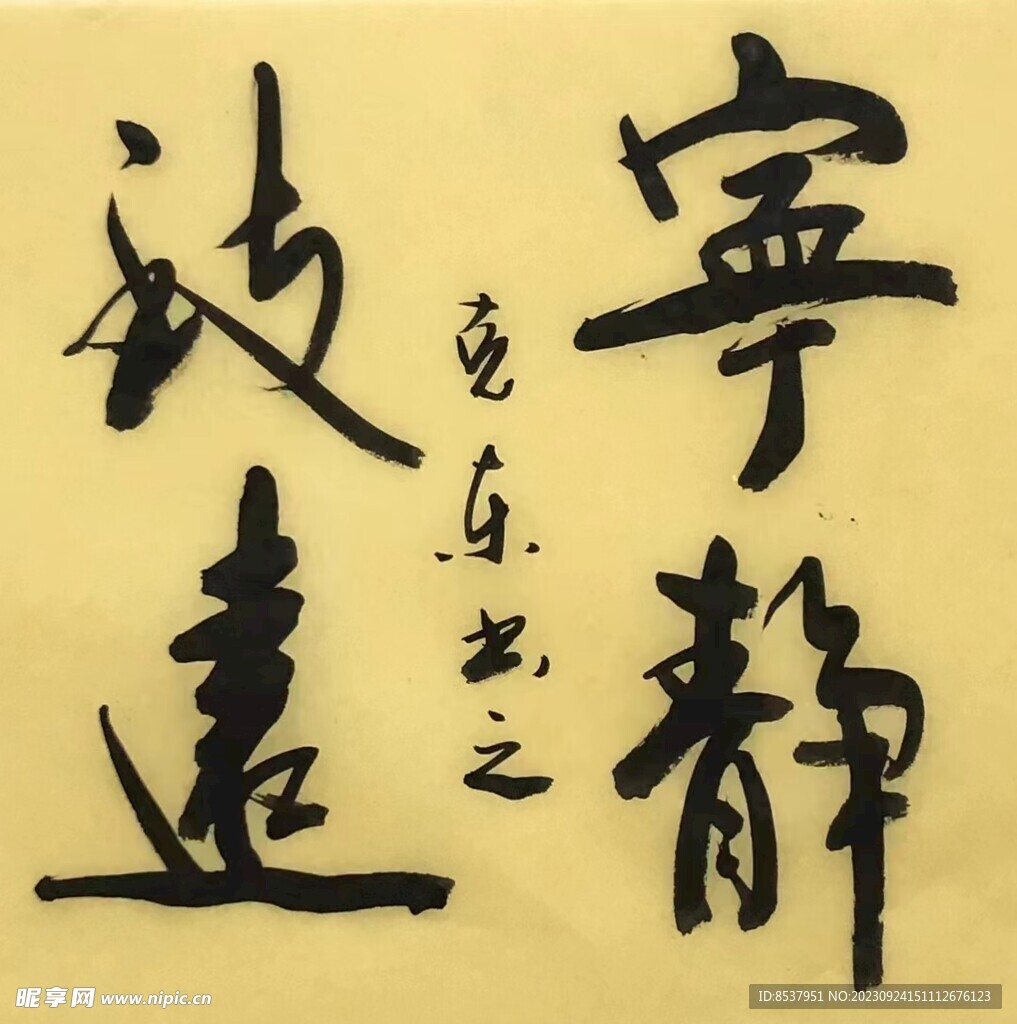 寧靜
致遠
克东书之
昵享网 www.nipic.cn
ID:8537951 NO:20230924151112676123